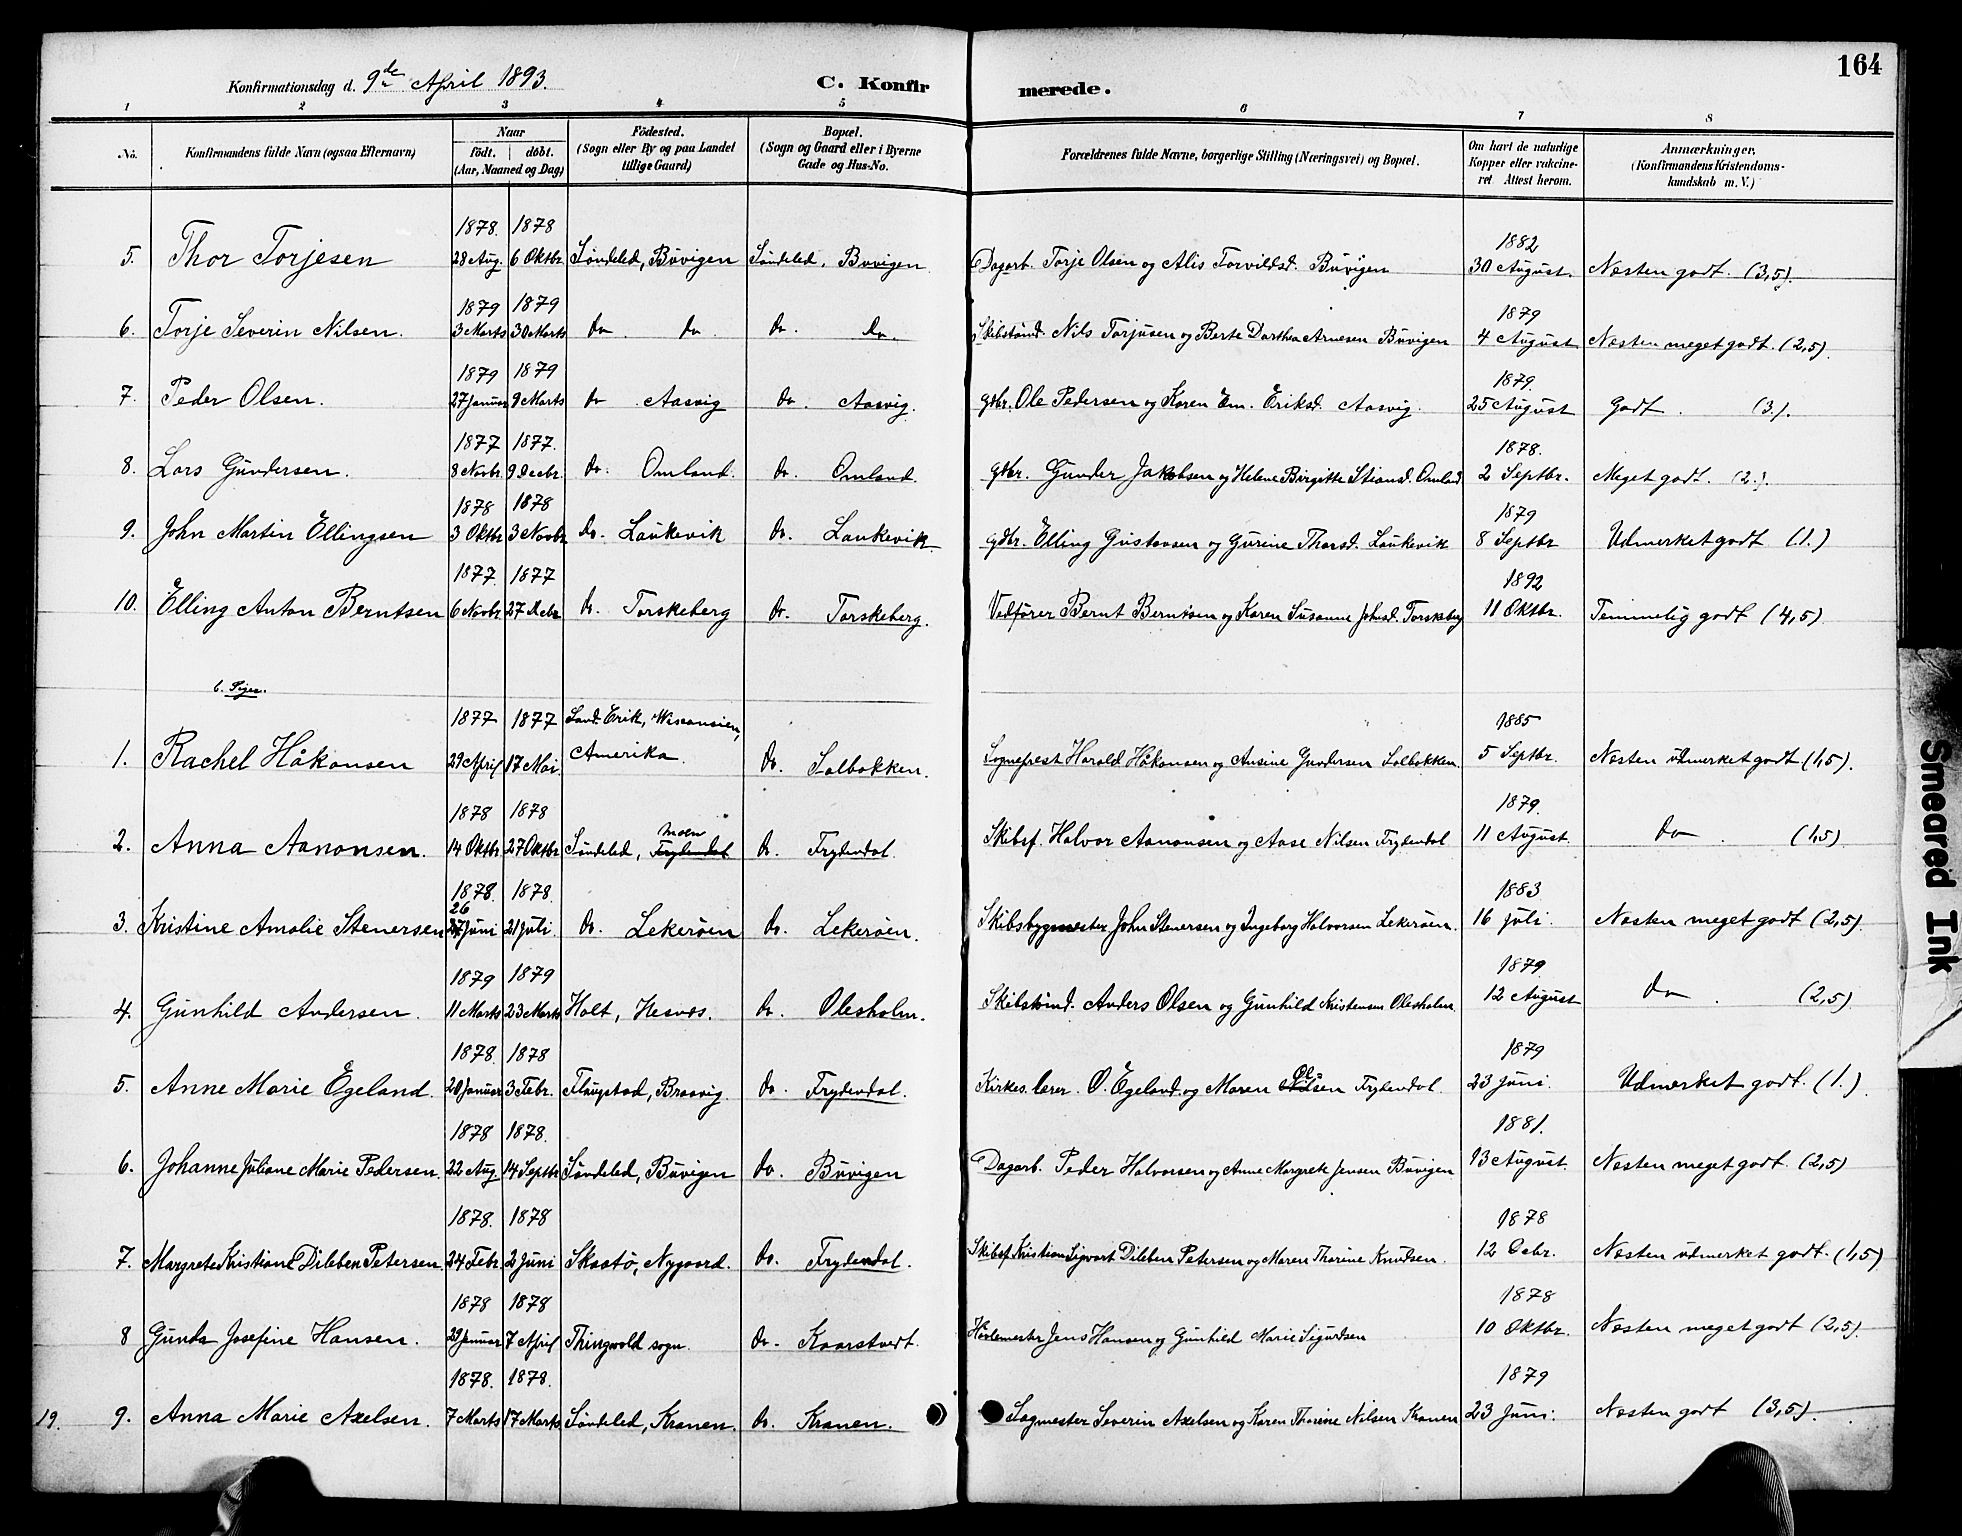 164
Konfirmationsdag d. 9de April 1893. C. Konfirmerede.
1 2 3 4 5 6 7 8
No. Konfirmandens fulde Navn (ogsaa Efternavn) Naar födt. döbt. (Aar, Maaned og Dag) Födested. (Sogn eller By og paa Landet tillige Gaard) Bopæl. (Sogn og Gaard eller i Byerne Gade og Hus-No. Forældrenes fulde Navne, borgerlige Stilling (Næringsvei) og Bopæl. Om havt de naturlige Kopper eller vakcineret Attest herom. Anmærkninger. (Konfirmandens Kristendomskundskab m. V.)
1878. 1878 1882
5. Thor Torjesen 28 Aug. 6 Oktbr. Søndeled, Buvigen Søndeled, Buvigen Dagarb. Torje Olsen og Alis Torvildsd. Buvigen 30 August. Næsten godt. (3,5).
1879 1879 1879
6. Torje Severin Nilsen. 3 Marts 30 Marts do do do. do. Nils Torjusen og Berte Dorthea Arnesen Buvigen 4 August Næsten meget godt. (2,5).
1879 1879 1879.
7. Peder Olsen. 27 Januar 9 Marts do Aasvig do. Aasvig. gdbr. Ole Pedersen og Karen Em. Eriksd. Aasvig. 25 August Godt. (3).
1877 1877. 1878.
8. Lars Gundersen. 8 Novbr. 9 Decbr. do. Omland. do. Omland. gdbr. Gunder Jakobsen og Helene Birgitte Stiansd. Omland 2 Septbr. Meget godt. (2.).
1878 1878 1879
9. John Martin Ellingsen 3 Oktbr 3 Novbr do. Laukevik do. Laukevik gdbr. Elling Gustavsen og Gurine Thorsd. Laukevik 8 Septbr Udmerket godt (1.)
1877. 1877 1892
10. Elling Anton Berntsen 6 Novbr. 27 Decbr. do. Torskeberg do. Torskeberg. Vedfører Bernt Berntsen og Karen Susanne Johnsd. Torskeberg 11 Oktbr. Temmelig godt (4,5)
b. Piger.
1877 1877 Erik, Wisconsien, 1885
1. Rachel Håkonsen 29 April 17 Mai. Amerika. do. Solbakken. Sogneprest Harald Håkonsen og Ansine Gundersen Solbakken. 5 Septbr. Næsten udmerket godt (1,5).
1878 1878 Moen 1879.
2. Anna Aanonsen. 14 Oktbr 27 Oktbr Søndeled, Frydendal do. Frydendal. Skibsf. Halvor Aanonsen og Aase Nilsen Frydendal 11 August. do (1,5)
1878. 1878. 1883
26
3. Kristine Amalie Stenersen 27 Juni 21 Juli. do. Lekerøen do. Lekerøen. Skibsbygmester John Stenersen og Ingeborg Halvorsen Lekerøen. 16 juli. Næsten meget godt (2,5)
1879 1879 1879.
4. Gunhild Andersen. 11 Marts 23 Marts Holt, Hesnæs. do. Olesholm. Skibstømd. Anders Olsen og Gunhild Kristensen Olesholm. 12 August do. (2,5)
1878. 1878 1879
5. Anne Marie Egeland. 20 Januar 3 Febr. Flaugstad, Braavig. do. Frydendal. Kirkes. lærer. O. Egeland og Maren Olsen Frydendal. 23 juni. Udmerket godt. (1.)
1878 1878. 1881.
6. Johanne Juliane Marie Pedersen. 22 Aug. 14 Septbr Søndeled, Buvigen do. Buvigen Dagarb. Peder Halvorsen og Anne Margrete Jensen Buvigen 13 August. Næsten meget godt. (2,5)
1878. 1878 1878
7. Margrete Kristiane Dileben Petersen. 24 Febr. 2 Juni Skaatø, Nygaard. do. Frydendal. Skibsf. Kristian Sigvart Dileben Petersen og Maren Thorine Knudsen. 12 Decbr. Næsten udmerket godt. (1,5)
1878 1878 1878
8 Gunda Josefine Hansen. 29 Januar 7 April Thingvold sogn. do. Kaarstvedt. Høvlemester Jens Hansen og Gunhild Marie Sigurdsen 10 Oktbr. Næsten meget godt (2,5).
1878. 1878. 1879
19. 9. Anna Marie Axelsen. 7 Marts 17 Marts Søndeled, Kranen. do. Kranen. Sagmester Severin Axelsen og Karen Thorine Nilsen Kranen 23 Juni. Næsten godt (3,5).
Smeared Ink